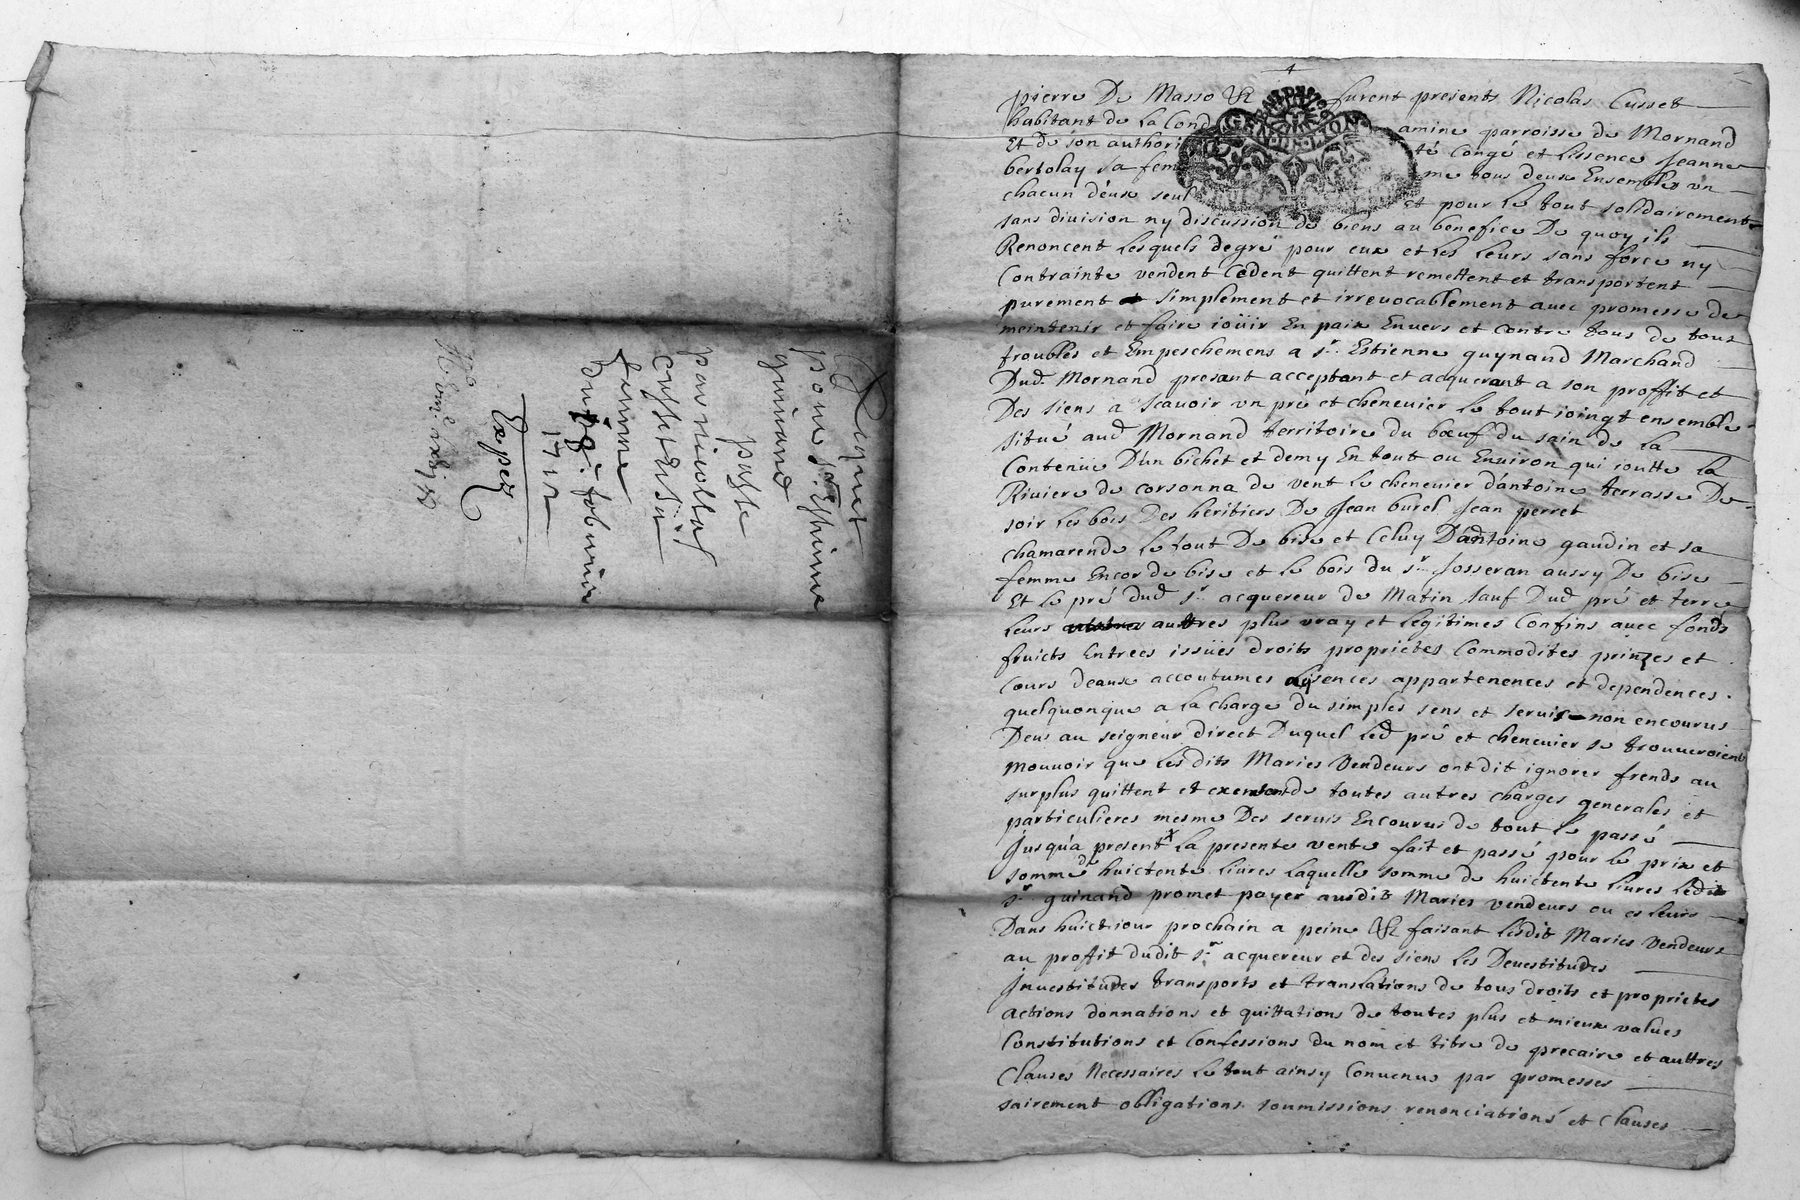 Acquet
pour Sr. Esthienne
guinand
passé
par nicollas
et sa
femme
du 19e. febvrier
1717
Expéz
pierre De Masso &c furent presents Nicolas Cusset
habitant de La Cond amine parroisse de Mornand
Et de son authori té Congé et Lissence Jeanne
bertolay sa fem me tous deux Ensembles un
chacun d'eux seul et pour Le tout solidairement
sans division ny discussion de biens au benefice De quoy ils
Renoncent Lesquels degré pour eux et Les Leurs sans force ny
Contrainte vendent Cedent quittent remettent et transportent
purement et simplement et irrevocablement avec promesse de
meintenir et faire ioüir En paix Envers et Contre tous de tous
troubles et Empeschemens a sr. Estienne guynand Marchand
Dud. Mornand presant acceptant et acquerant a son proffit et
Des siens a scauoir vn pré et cheneuier Le tout ioingt ensemble
situé aud Mornand territoire du bœuf du sain de La
Contenüe D'un bichet et demy En tout ou Environ qui ioutte La
Riviere de corsonna de vent Le cheneuier d'antoine terrasse De
soir Les bois Des héritiers De Jean burel Jean perret
chamarende Le tout De bise et Celuy D'antoine gaudin et sa
femme Encor de bise et Le bois du sr. Josseran aussy De bise
Et Le pré dud sr. acquereur de Matin sauf Dud pré et terre
Leurs auttres plus vray et Legitimes Confins avec fonds
fruicts Entrees issües droits proprietes Commodites prinzes et
Cours deaux accoutumes aysences appartenences et dependences
quelquonque a La charge du simples sens et seruis non encourus
Deus au seigneur direct Duquel Led pré et cheneuier se trouveroient
mouvoir que Lesdits Maries Vendeurs ont dit ignorer frends au
surplus quittent et exemptende toutes autres charges generales et
particulieres mesme Des seruis Encourus de tout Le passé
Jusqu'a present La presente vente fait et passé pour Le prix et
somme de huictente Liures Laquelle somme de huictente Liures Ledit
sr. guinand promet payer ausdits Maries vendeurs ou es Leurs
Dans huict iour prochain a peine &c faisant Lesdit Maries Vendeurs
au proffit dudit sr. acquereur et des siens Les Devestitudes
Jnuestitudes transports et translations de tous droits et proprietes
actions donnations et quittations de toutes plus et mieux values
Constitutions et Confessions du nom et titre de precaire et auttres
Clauses Necessaires Le tout ainsy Convenus par promesses
sairement obligations soumissions renonciations et Clauses